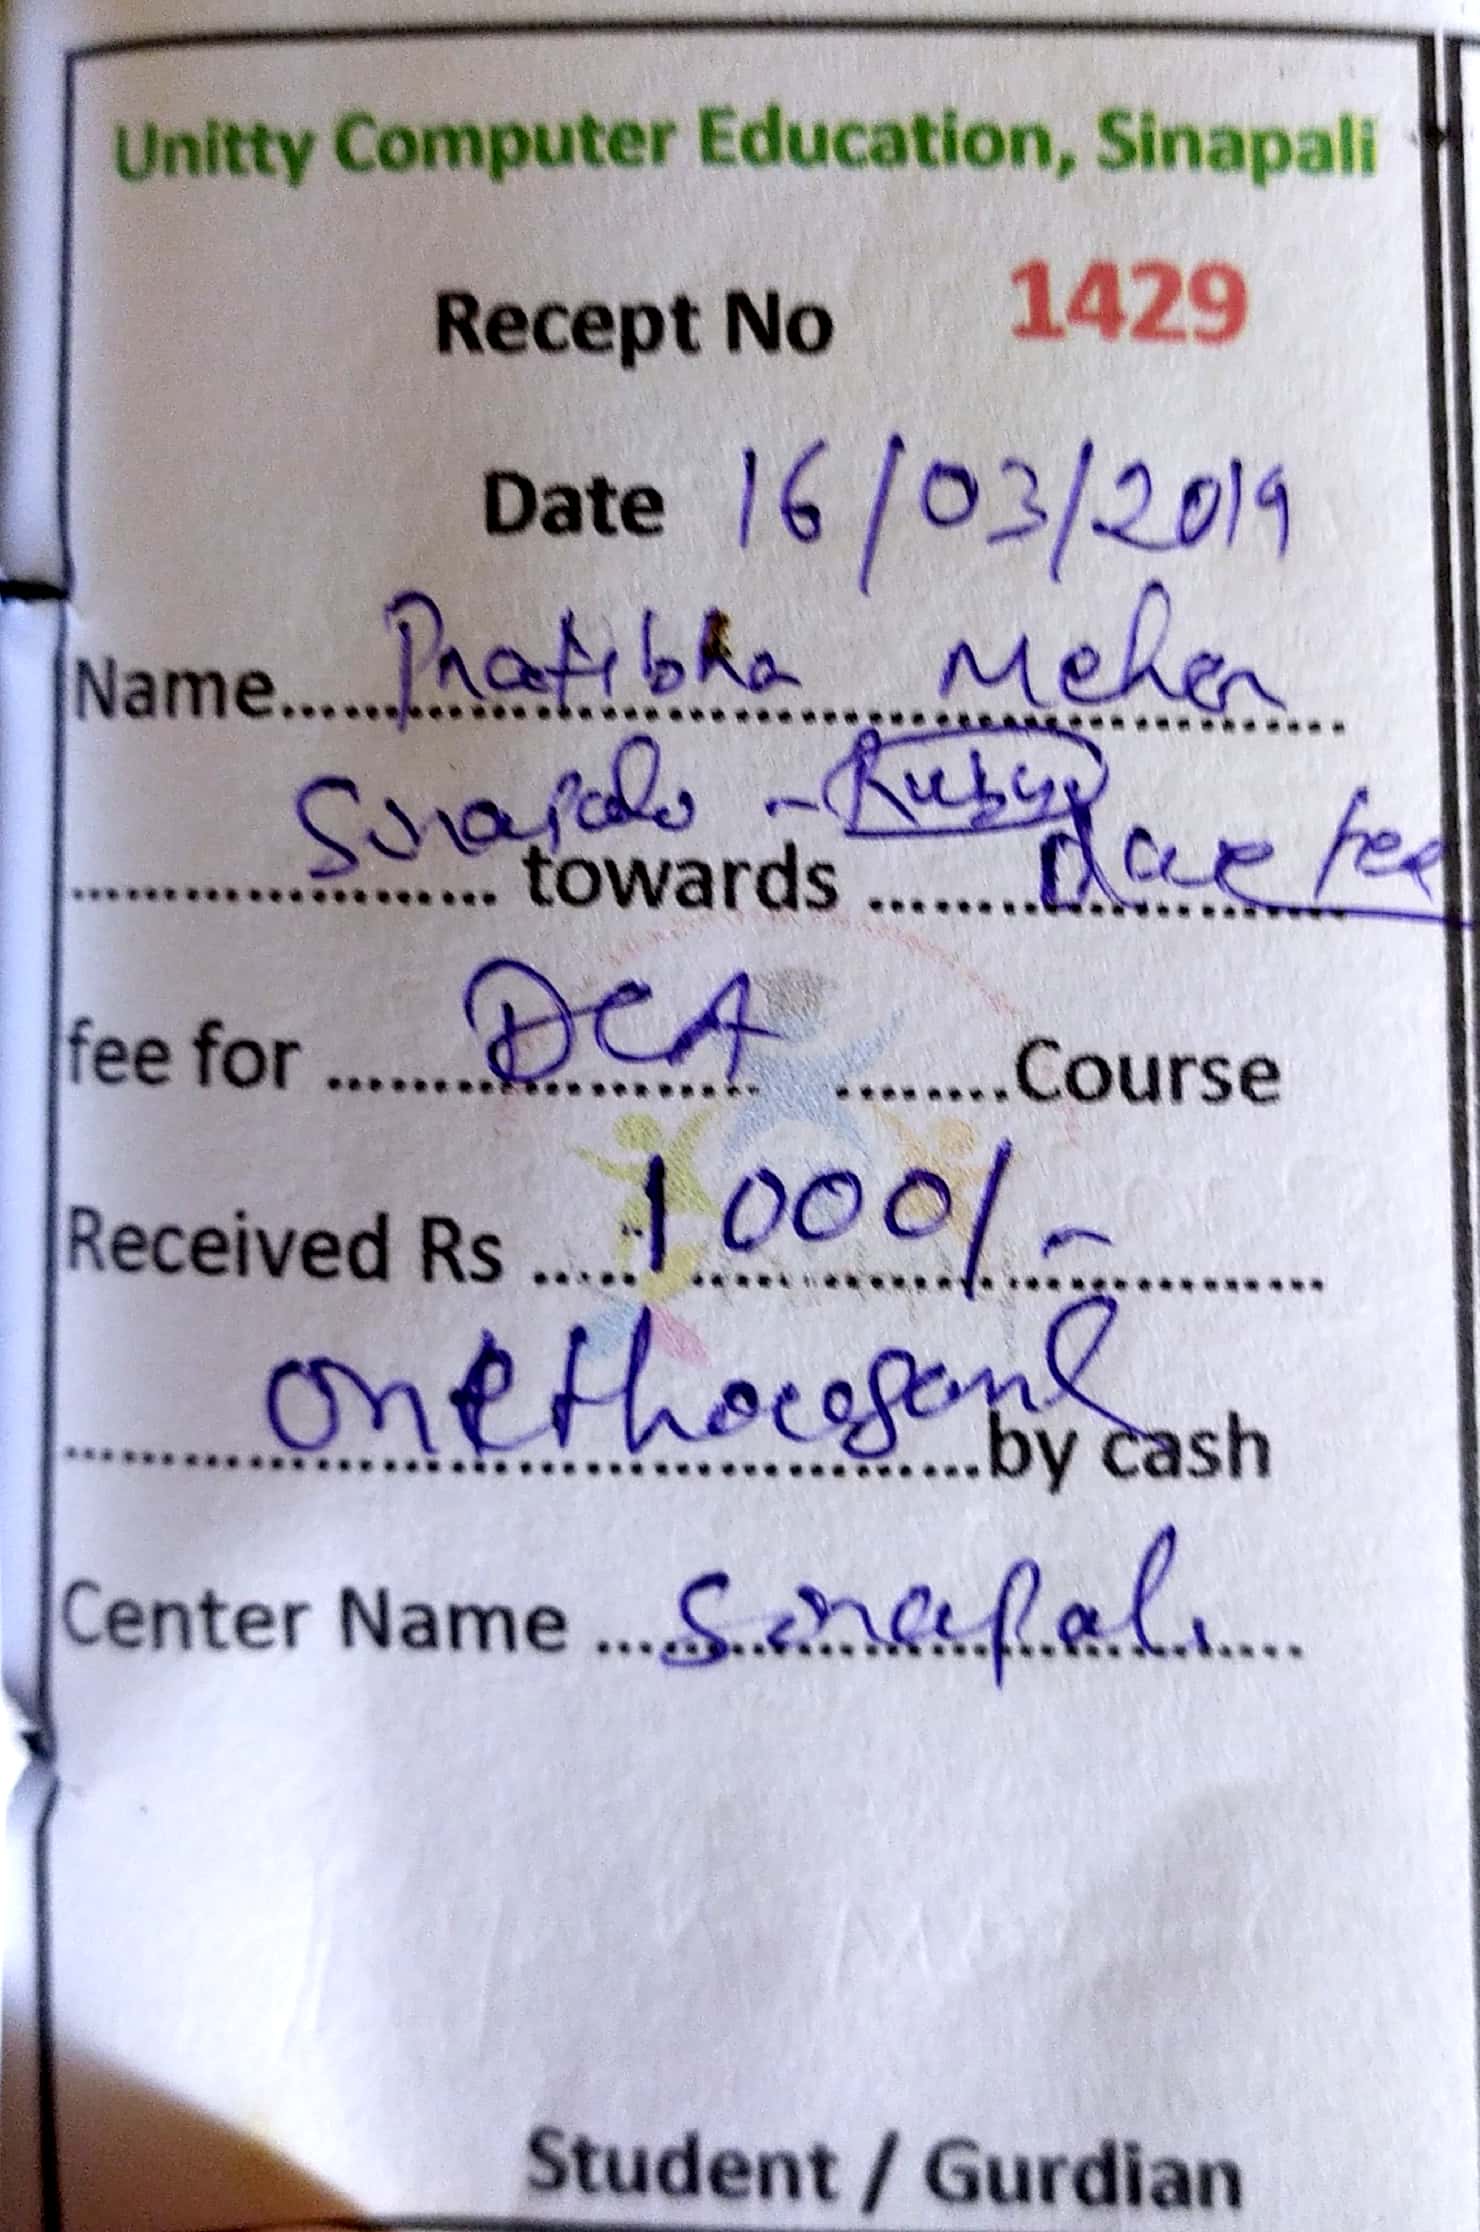 Unitty Computer Education, Sinapali
Recept No 1429
Date 16/03/2019
Name.....Pratibha Meher
Sinapali - Ruby
..................... towards ........ due fee
fee for ........ DCA ........Course
Received Rs ..... 1000/-
onethousand by cash
Center Name ... Sinapali
Student / Gurdian